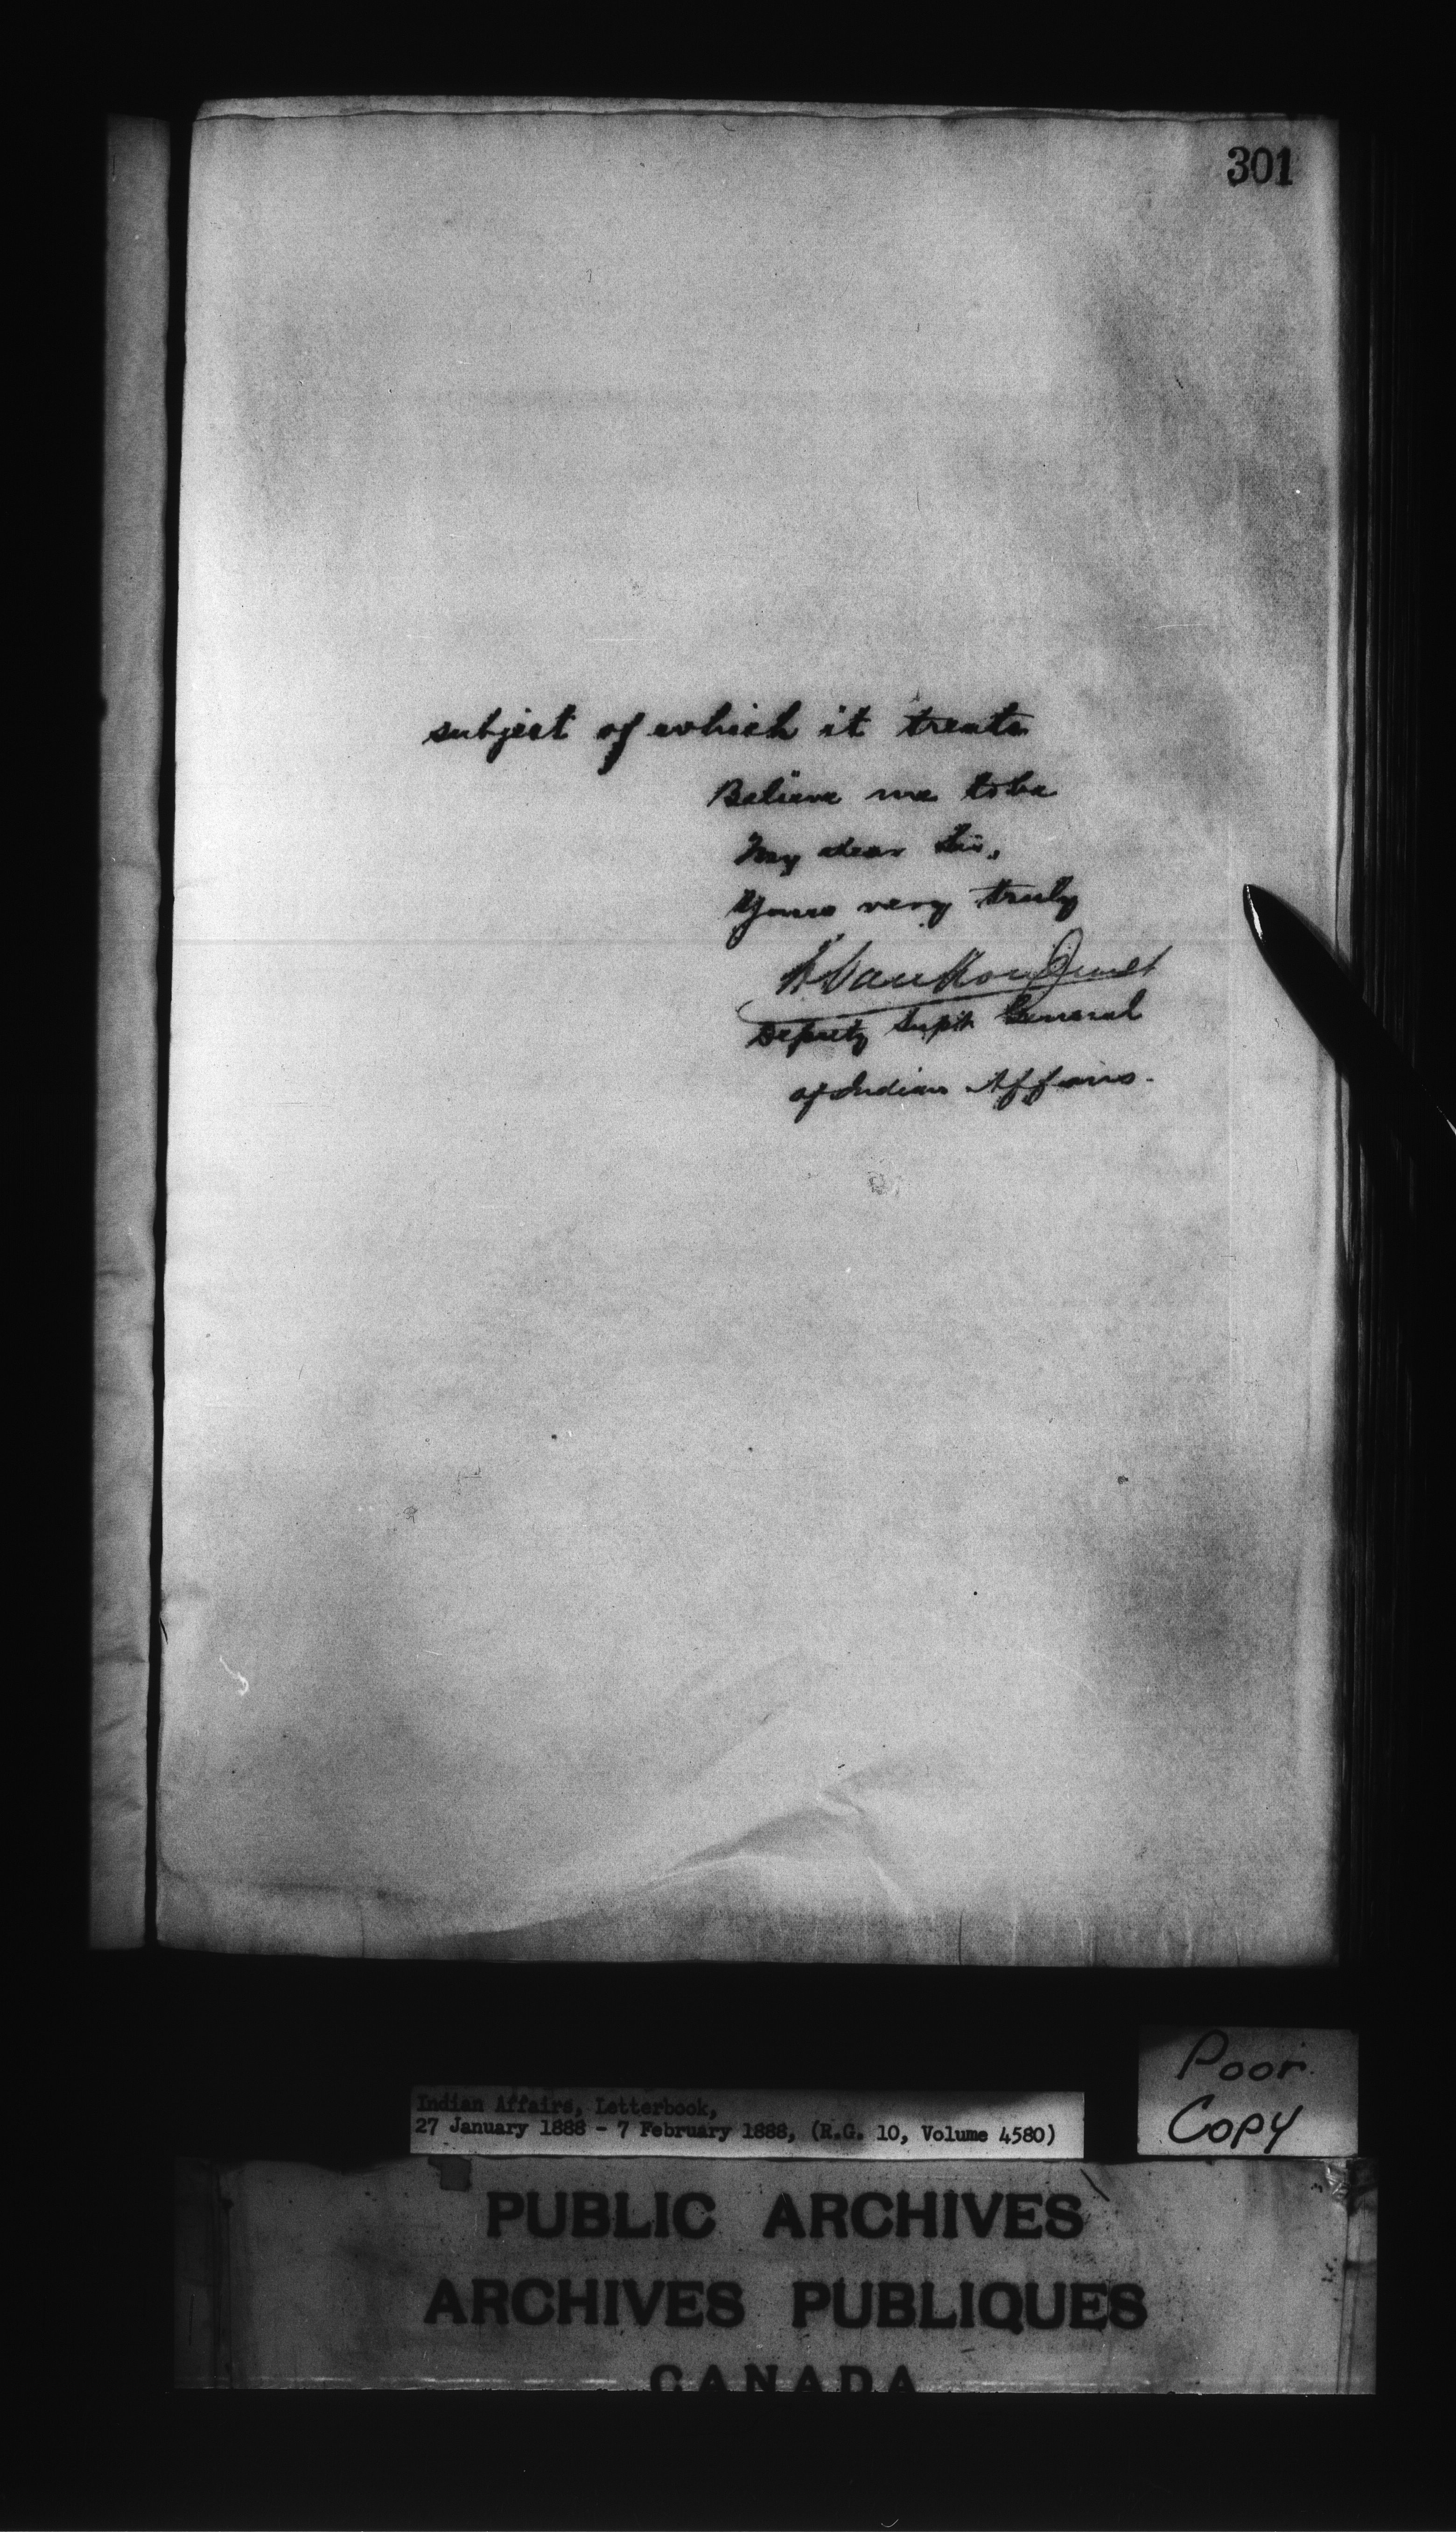 301
subject of which it treats
Believe me to be
My dear Sir,
Yours very truly
L VanKoughnet
Deputy Supt. General
of Indian Affairs.
Poor
Copy
Indian Affairs, Letterbook,
27 January 1888 - 7 February 1888, (R.G. 10, Volume 4580)
PUBLIC ARCHIVES
ARCHIVES PUBLIQUES
CANADA